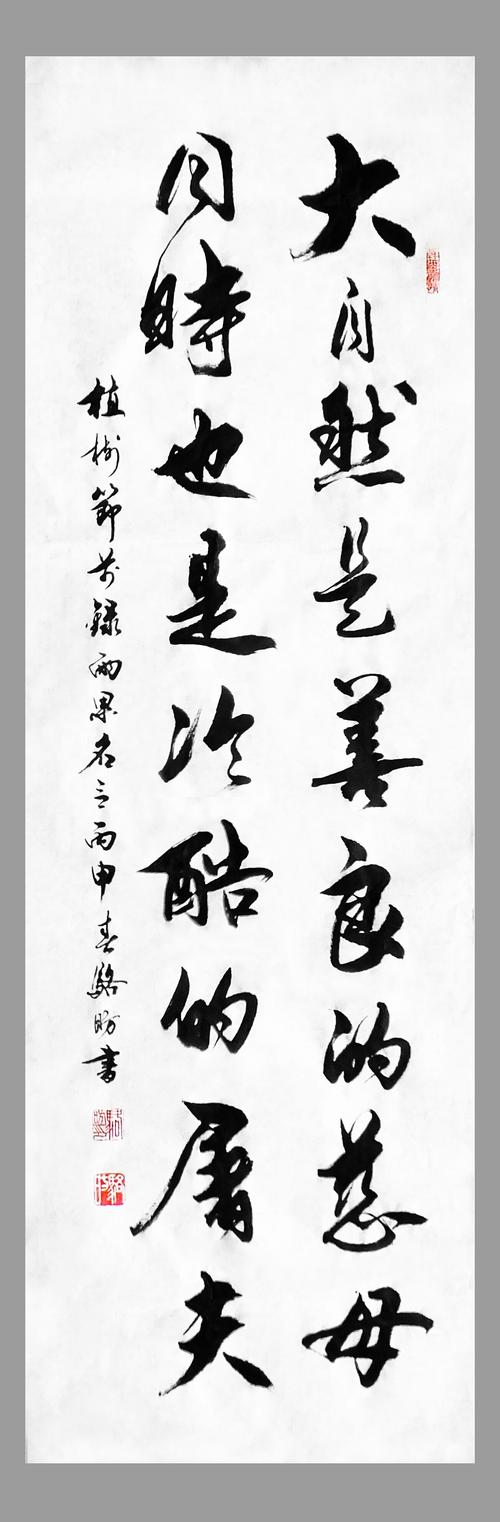 大自然是善良的慈母
同時也是冷酷的屠夫
植樹節前錄雨果名言丙申春駱書